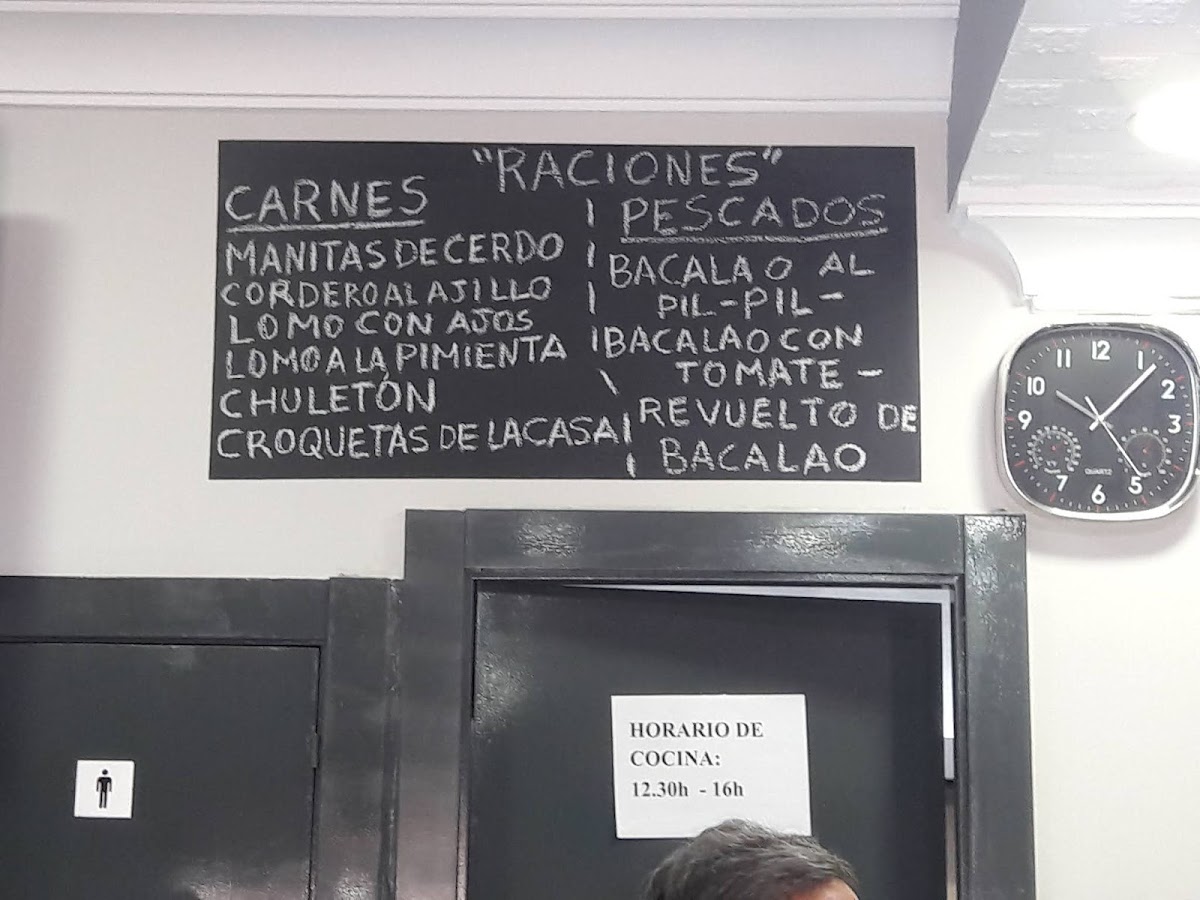 "RACIONES"
CARNES
MANITAS DE CERDO
CORDERO AL AJILLO
LOMO CON AJOS
LOMO A LA PIMIENTA
CHULETÓN
CROQUETAS DE LA CASA
PESCADOS
BACALAO AL
PIL-PIL-
BACALAO CON
TOMATE-
REVUELTO DE
BACALAO
12
1
2
3
5
6
7
9
10
11
QUARTZ
HORARIO DE
COCINA:
12.30h - 16h